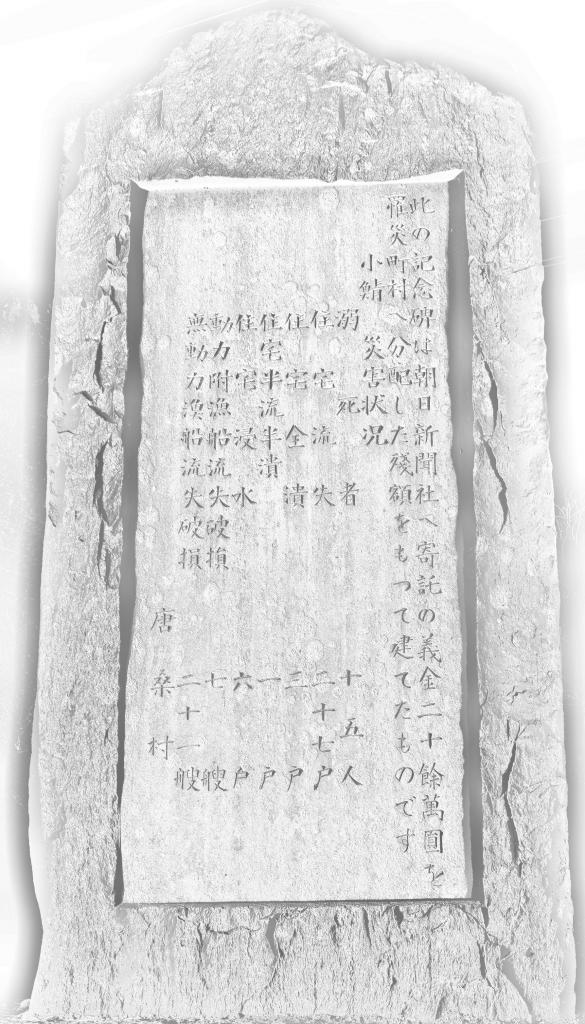 此の記念碑は朝日新聞社へ寄託の義金二十餘萬圓を
罹災町村へ分配した殘額をもつて建てたものです
小鯖 災害状況
溺死者 十五人
住宅流失 二十七戸
住宅全潰 三戸
住宅半流半潰 一戸
住宅浸水 六戸
動力附漁船流失破損 七艘
無動力漁船流失破損 二十一艘
唐桑村